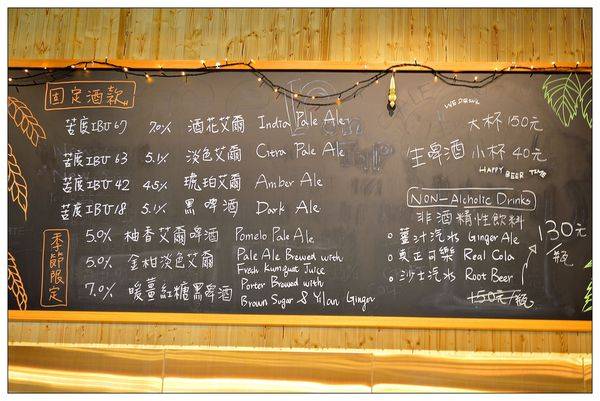 固定酒款
苦度IBU 67 7.0% 酒花艾爾 India Pale Ale
苦度IBU 63 5.1% 淡色艾爾 Citra Pale Ale
苦度IBU 42 4.5% 琥珀艾爾 Amber Ale
苦度IBU 18 5.1% 黑啤酒 Dark Ale
季節限定
5.0% 柚香艾爾啤酒 Pomelo Pale Ale
5.0% 金柑淡色艾爾 Pale Ale Brewed with
Fresh Kumquat Juice
7.0% 暖薑紅糖黑啤酒 Porter Brewed with
Brown Sugar & Yilan Ginger
大杯 150元
生啤酒 小杯 40元
HAPPY BEER TIME
Non-Alcholic Drinks
非酒精性飲料
薑汁汽水 Ginger Ale
真正可樂 Real Cola
沙士汽水 Root Beer
150元/瓶
130元
/瓶